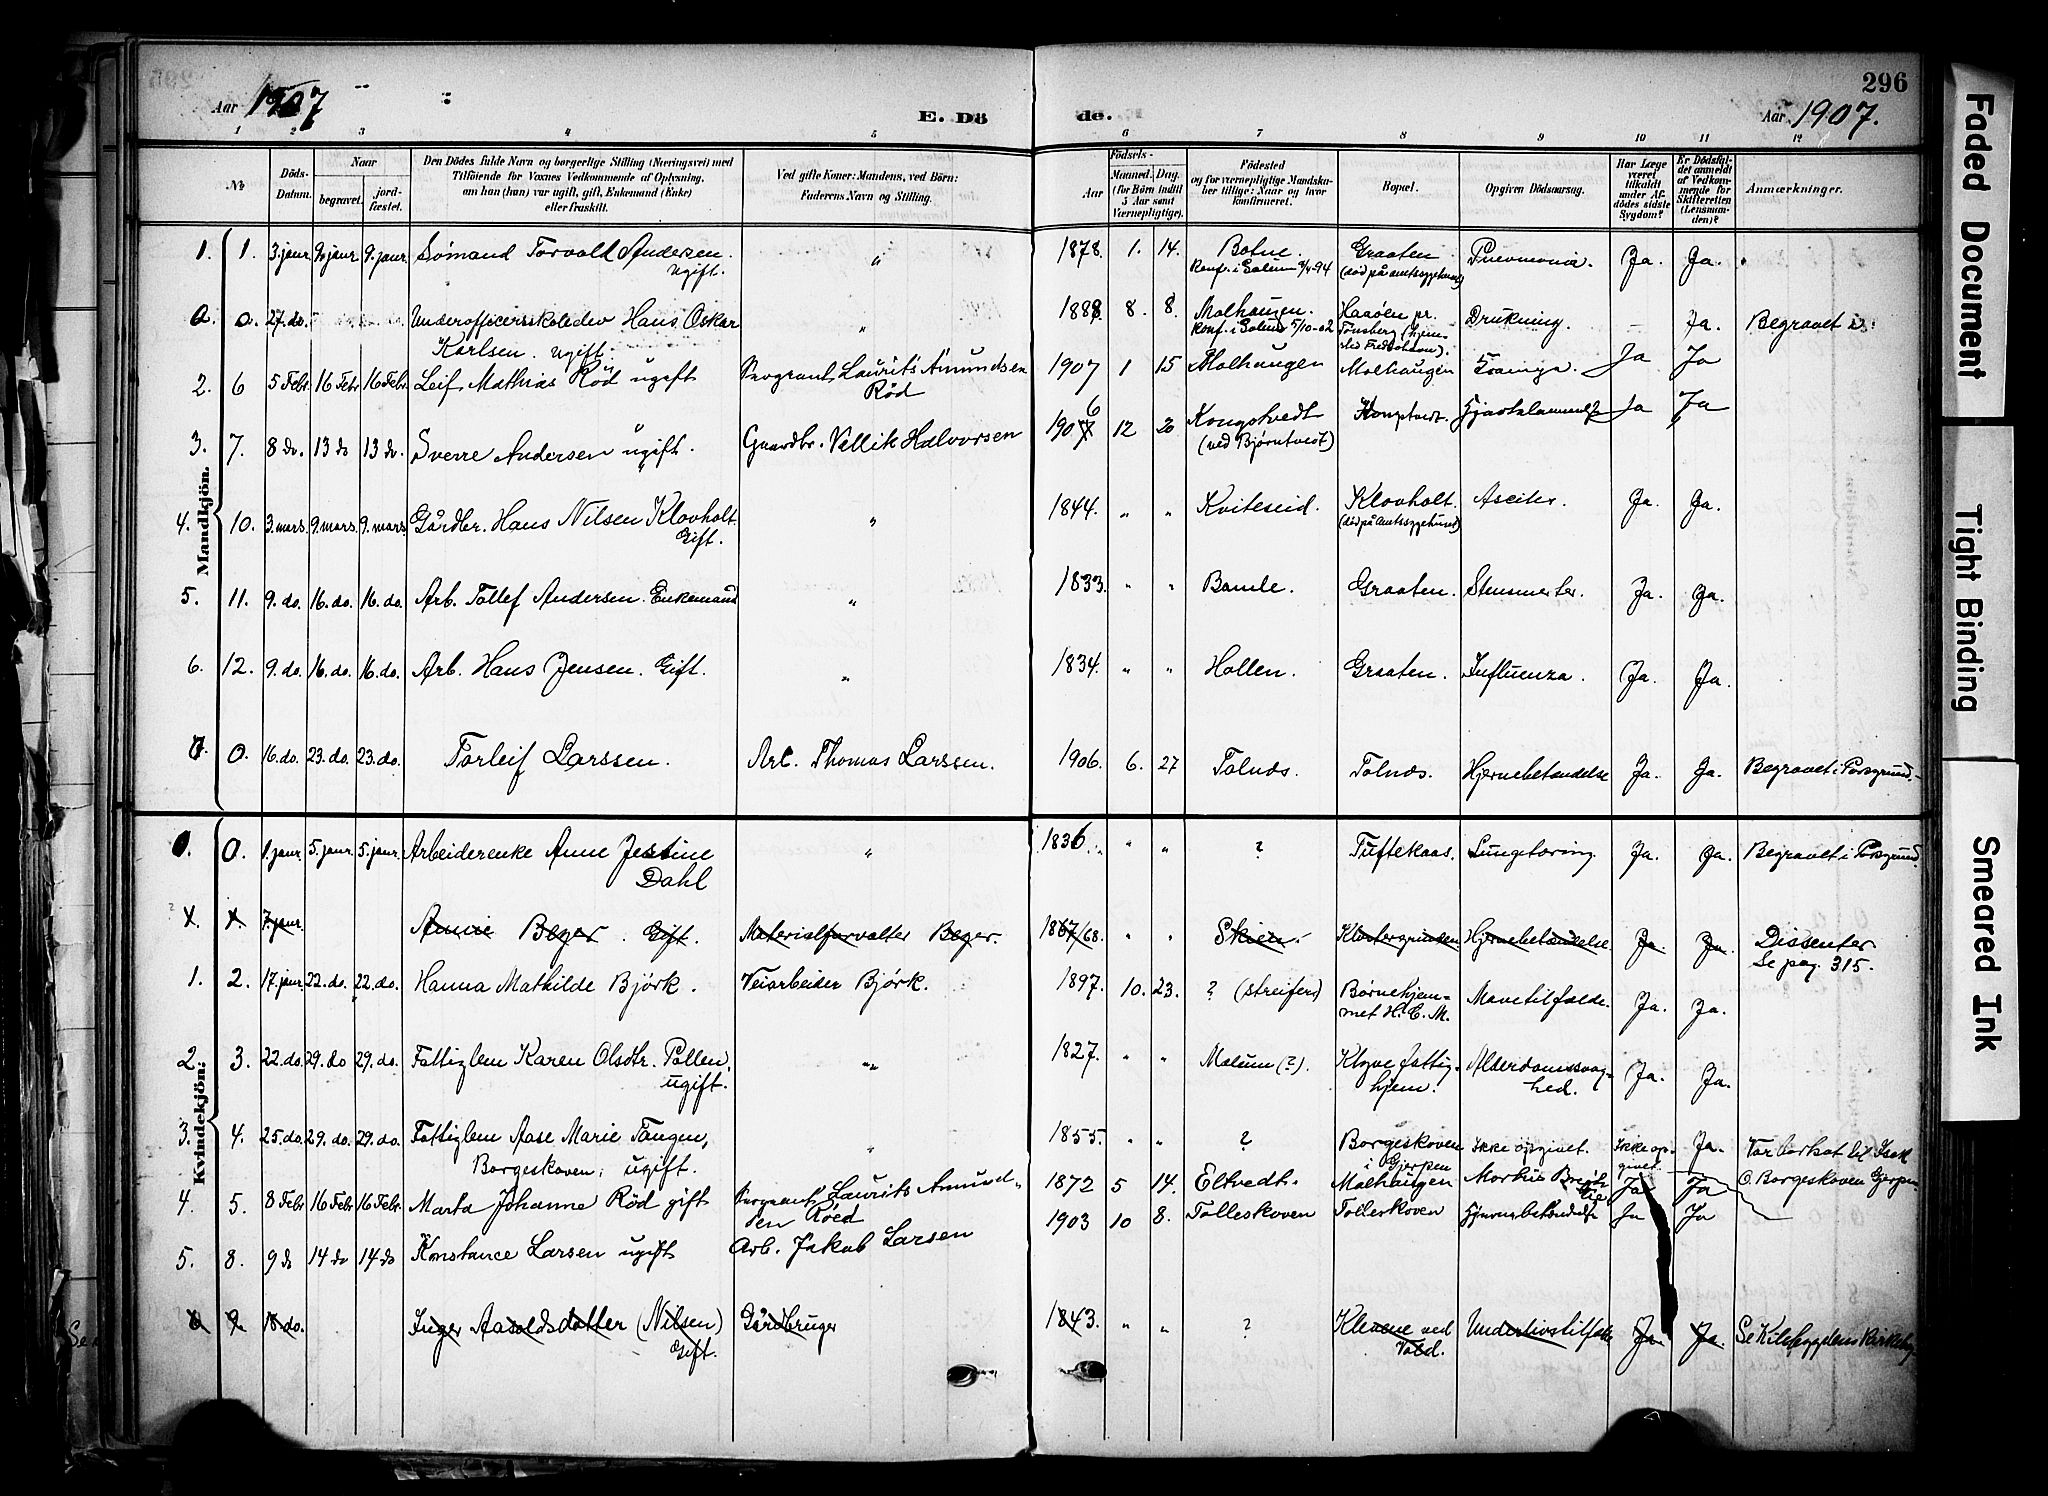 296
Aar 1907
E. Dö
de.
Aar 1907.
1 2 3 4 5 6 7 8 9 10 11 12
№
Döds-Datum.
Naar
begravet.
jordfæstet.
Den Dödes fulde Navn og borgerlige Stilling (Næringsvei) med
Tilföiende for Voxnes Vedkommende af Oplysning,
om han (hun) var ugift, gift, Enkemand (Enke)
eller fraskilt.
Ved gifte Koner: Mandens, ved Börn:
Faderens Navn og Stilling.
Födsels-
Aar
Maaned. Dag.
(for Börn indtil
5 Aar samt
Værnepligtige).
Födested
og for værnepligtige Mandskaber tillige: Naar og hvor
konfirmeret.
Bopæl.
Opgiven Dödsaarsag.
Har Læge været tilkaldt under Afdödes sidste Sygdom?
Er Dödsfaldet anmeldt af Vedkommende for Skifteretten (Lensmanden)?
Anmærkninger.
Mandkjön.
1. 1. 3. janr. 9. janr. 9. janr. Sømand Torvald Andersen. ugift. " 1878. 1. 14. Botne. Konf. i Solum 94 Graaten (død på amtssygehuset) Pneumonia. Ja. Ja.
0. 0. 27. do. Underofficersskoleelev Hans Oskar Karlsen. ugift. " 1887. 8. 8. Molhaugen. Konf. i Solum 5/10-02 Haaöen pr. Tønsberg Drukning. – Ja. Begravet i
2. 6 5 Febr 16 Febr 16 Febr. Leif Mathias Röd ugift Sergeant Laurits Amundsen Röd 1907 1 15 Molhaugen Molhaugen Ja Ja
3. 7. 8 do. 13 do 13 do. Sverre Andersen ugift. Gaardbr. Halvorsen 1906 12 20 Kongstvedt (ved Bjørntvedt) Kongstvedt. Ja Ja
4. 10. 3. mars. 9. mars. 9. mars. Gårdbr. Hans Nilsen Klovholt. Gift. " 1844. " " Kviteseid. Klovholt. (død på Amtssygehuset) Asciter. Ja. Ja.
5. 11. 9. do. 16. do. 16. do. Arb. Tollef Andersen. Enkemand " 1833. " " Bamle. Graaten. Stensmerter. Ja. Ja.
6. 12. 9. do. 16. do. 16. do. Arb. Hans Jensen. Gift. " 1834. " " Hollen. Graaten. Influenza. Ja. Ja.
0. 0. 16. do. 23. do. 23. do. Torleif Larssen. Arb. Thomas Larssen. 1906. 6. 27 Tolnds. Tolnds. Hjernebetændelse Ja. Ja. Begravet i Porsgrund.
Kvindekjön:
0. 0. 1. janr. 5. janr. 5. janr. Arbeiderenke Anne Jestine Dahl " 1836. " " ? Tuftekaas. Lungetæring. Ja. Ja. Begravet i Porsgrund.
x x 7. janr. Annie Beyer. Gift. Materialforvalter Beyer. 1867/68. " " Skien. Klostergrunden. Hjernebetændelse Ja. Ja. Dissenter Se pag. 315.
1. 2. 17. janr. 22. do. 22. do. Hanna Mathilde Björk. Veiarbeider Björk. 1897. 10. 23. ? (streifere) Børnehjemmet H. C. M. Mavetilfælde. Ja. Ja.
2. 3. 22. do. 29. do 29. do. Fattiglem Karen Olsdtr. Pollen. ugift. " 1827. " " Melum (?). Klyve fattighjem. Alderdomssvaghed. Ja. Ja.
3. 4. 25. do. 29. do. 29. do. Fattiglem Aase Marie Tangen, Borgeskoven; ugift. " 1855. " " ? Borgeskoven i Gjerpen Ikke opgivet. Ikke opgivet Ja. Var bortsat til Isak O. Borgeskoven Gjerpen
4. 5. 8 Febr 16 Febr 16 Febr. Marta Johanne Röd gift Sergeant Laurits Amundsen Röed 1872 5 14. Eltvedt. Molhaugen Morbus Ja Ja
5. 8. 9 do 14 do 14 do Konstance Larsen ugift Arb. Jakob Larsen 1903 10 8. Tolleskoven Tolleskoven Hjernebetændelse Ja Ja
6 9. 18 do. Inger Aasoldsdatter (Nilsen) Gift. Gårdbruger 1843. " " ? ved Underlivstilfælde Ja. Ja. Se Kilebygdens Kirkebog
Faded Document
Tight Binding
Smeared Ink